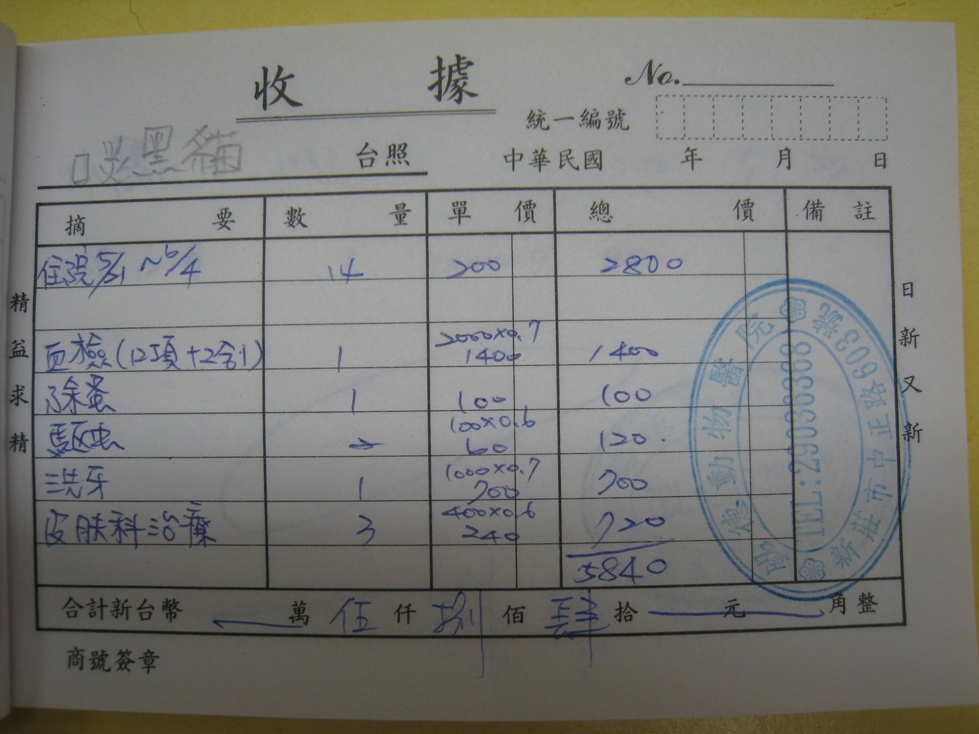 收據 No.
統一編號
黑貓 台照 中華民國 年 月 日
摘要 數量 單價 總價 備註
住院5/21~6/4 14 200 2800
2000×0.7
血檢(12項+2合1) 1 1400 1400
除蚤 1 100 100
100×0.6
驅虫 2 60 120.
1000×0.7
洗牙 1 700 700
400×0.6
皮肤科治療 3 240 720
5840
合計新台幣 萬 伍 仟 捌 佰 肆 拾 元 角整
商號簽章
精益求精
日新又新
德動物醫院
TEL:29033088
新莊市中正路609號